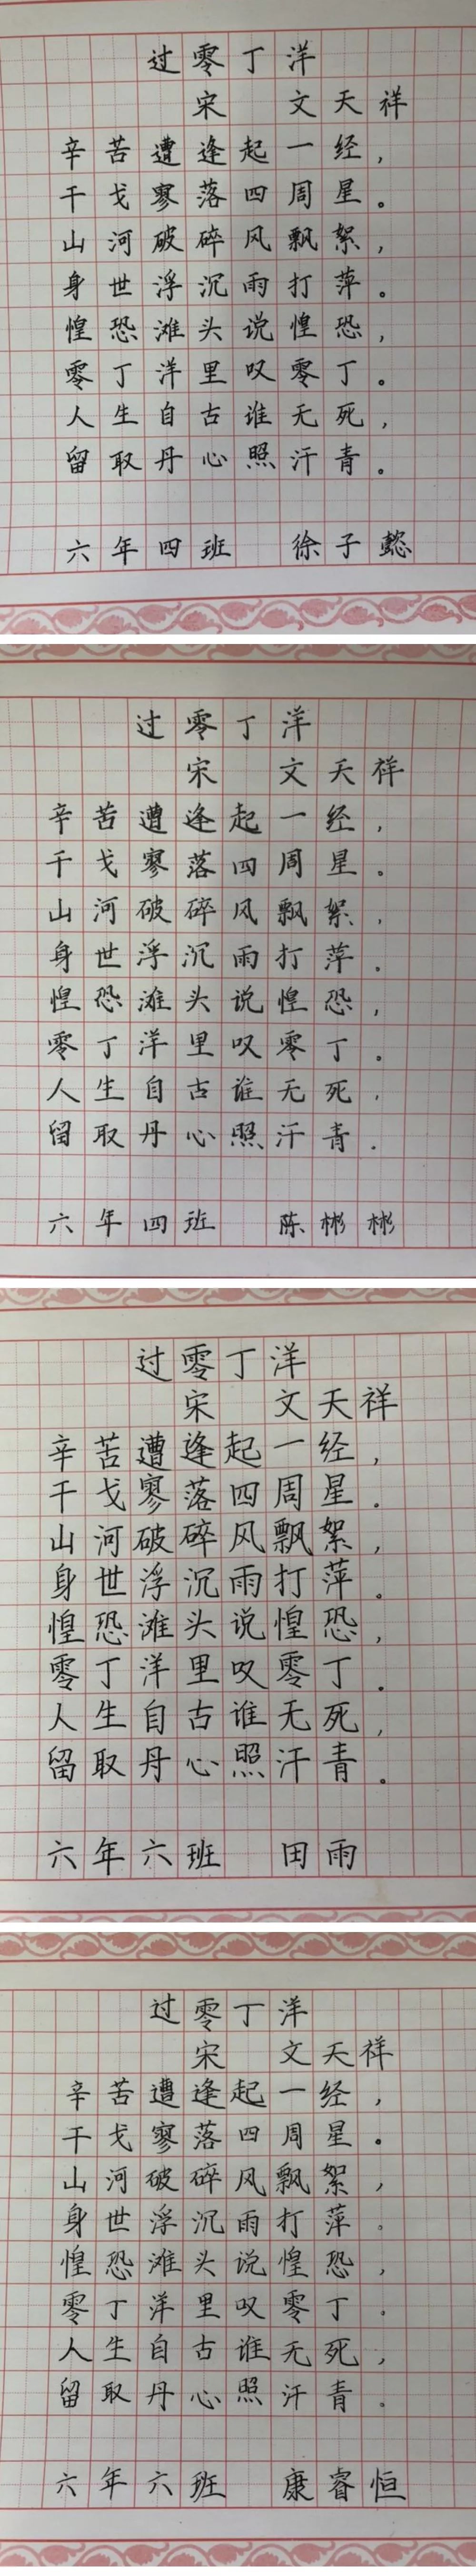 过零丁洋
宋 文天祥
辛苦遭逢起一经，
干戈寥落四周星。
山河破碎风飘絮，
身世浮沉雨打萍。
惶恐滩头说惶恐，
零丁洋里叹零丁。
人生自古谁无死，
留取丹心照汗青。
六年四班 徐子懿
过零丁洋
宋 文天祥
辛苦遭逢起一经，
干戈寥落四周星。
山河破碎风飘絮，
身世浮沉雨打萍。
惶恐滩头说惶恐，
零丁洋里叹零丁。
人生自古谁无死，
留取丹心照汗青。
六年四班 陈彬彬
过零丁洋
宋 文天祥
辛苦遭逢起一经，
干戈寥落四周星。
山河破碎风飘絮，
身世浮沉雨打萍。
惶恐滩头说惶恐，
零丁洋里叹零丁。
人生自古谁无死，
留取丹心照汗青。
六年六班 田雨
过零丁洋
宋 文天祥
辛苦遭逢起一经，
干戈寥落四周星。
山河破碎风飘絮，
身世浮沉雨打萍。
惶恐滩头说惶恐，
零丁洋里叹零丁。
人生自古谁无死，
留取丹心照汗青。
六年六班 康睿恒